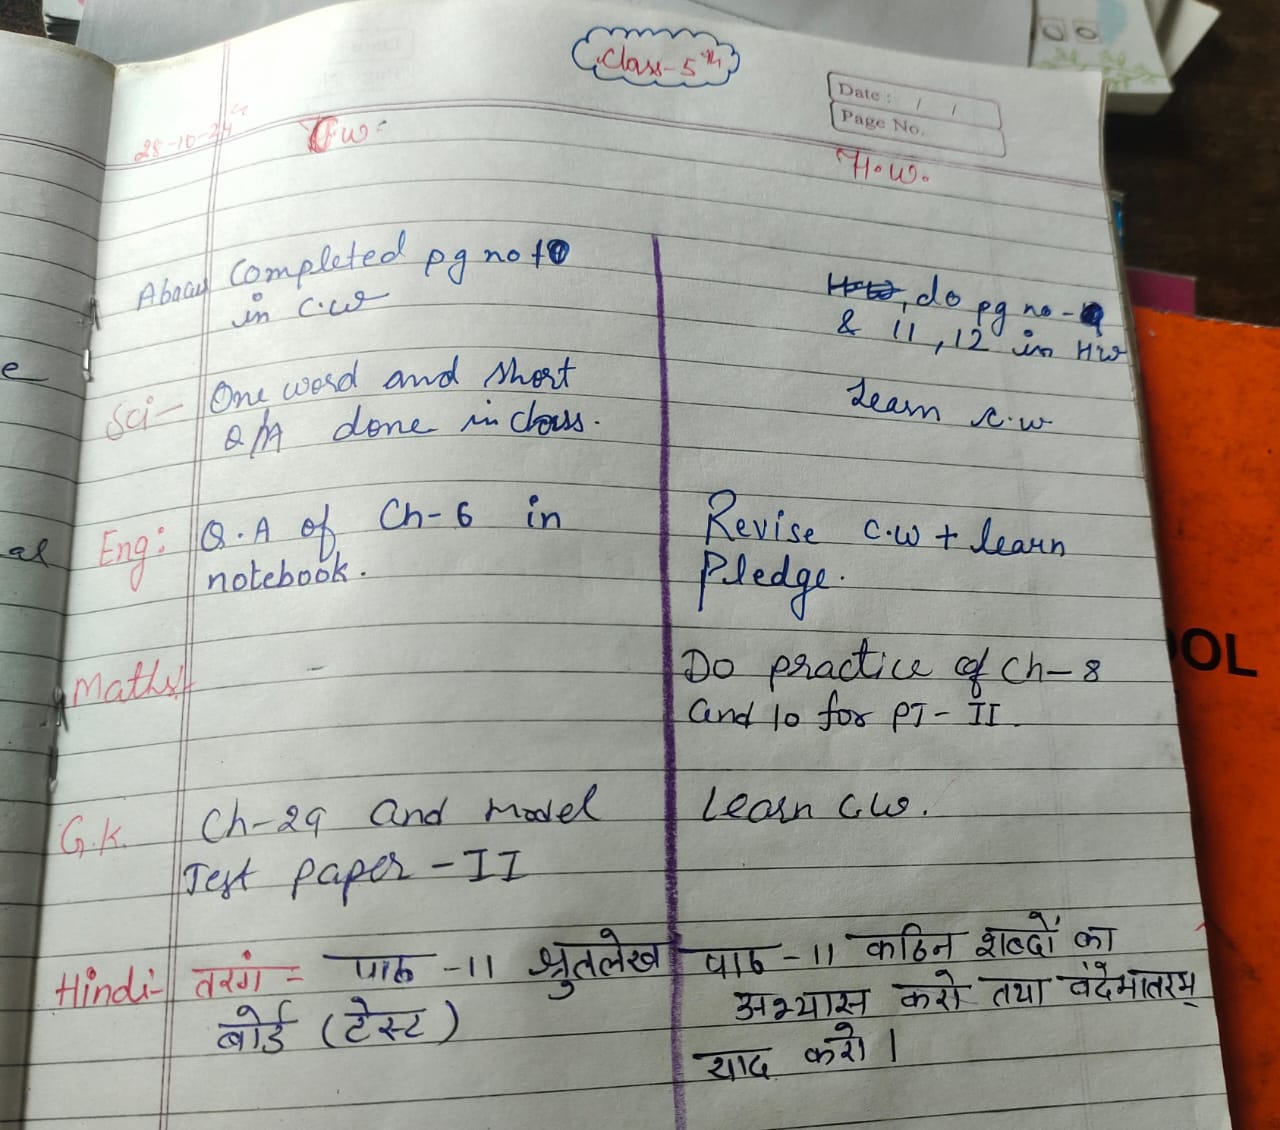 Class-5th
Date: / /
Page No.
28-10-24
C.W.
H.W.
Abacus Completed pg no 10
in C.W
H.W, do pg no - 9
& 11, 12 in HW
Sci- One word and short
Q/A done in class.
Learn C.W
Eng: Q.A of Ch-6 in
notebook.
Revise C.W + learn
Pledge.
Maths: -
Do practice of Ch-8
and 10 for PT-II.
G.K. Ch-29 and Model
Test paper - II
Learn C.W.
Hindi- तरंग = पाठ -11 श्रुतलेख
बोर्ड (टेस्ट)
पाठ -11 कठिन शब्दों का
अभ्यास करो तथा वंदेमातरम्
याद करो।
e
al
OOL